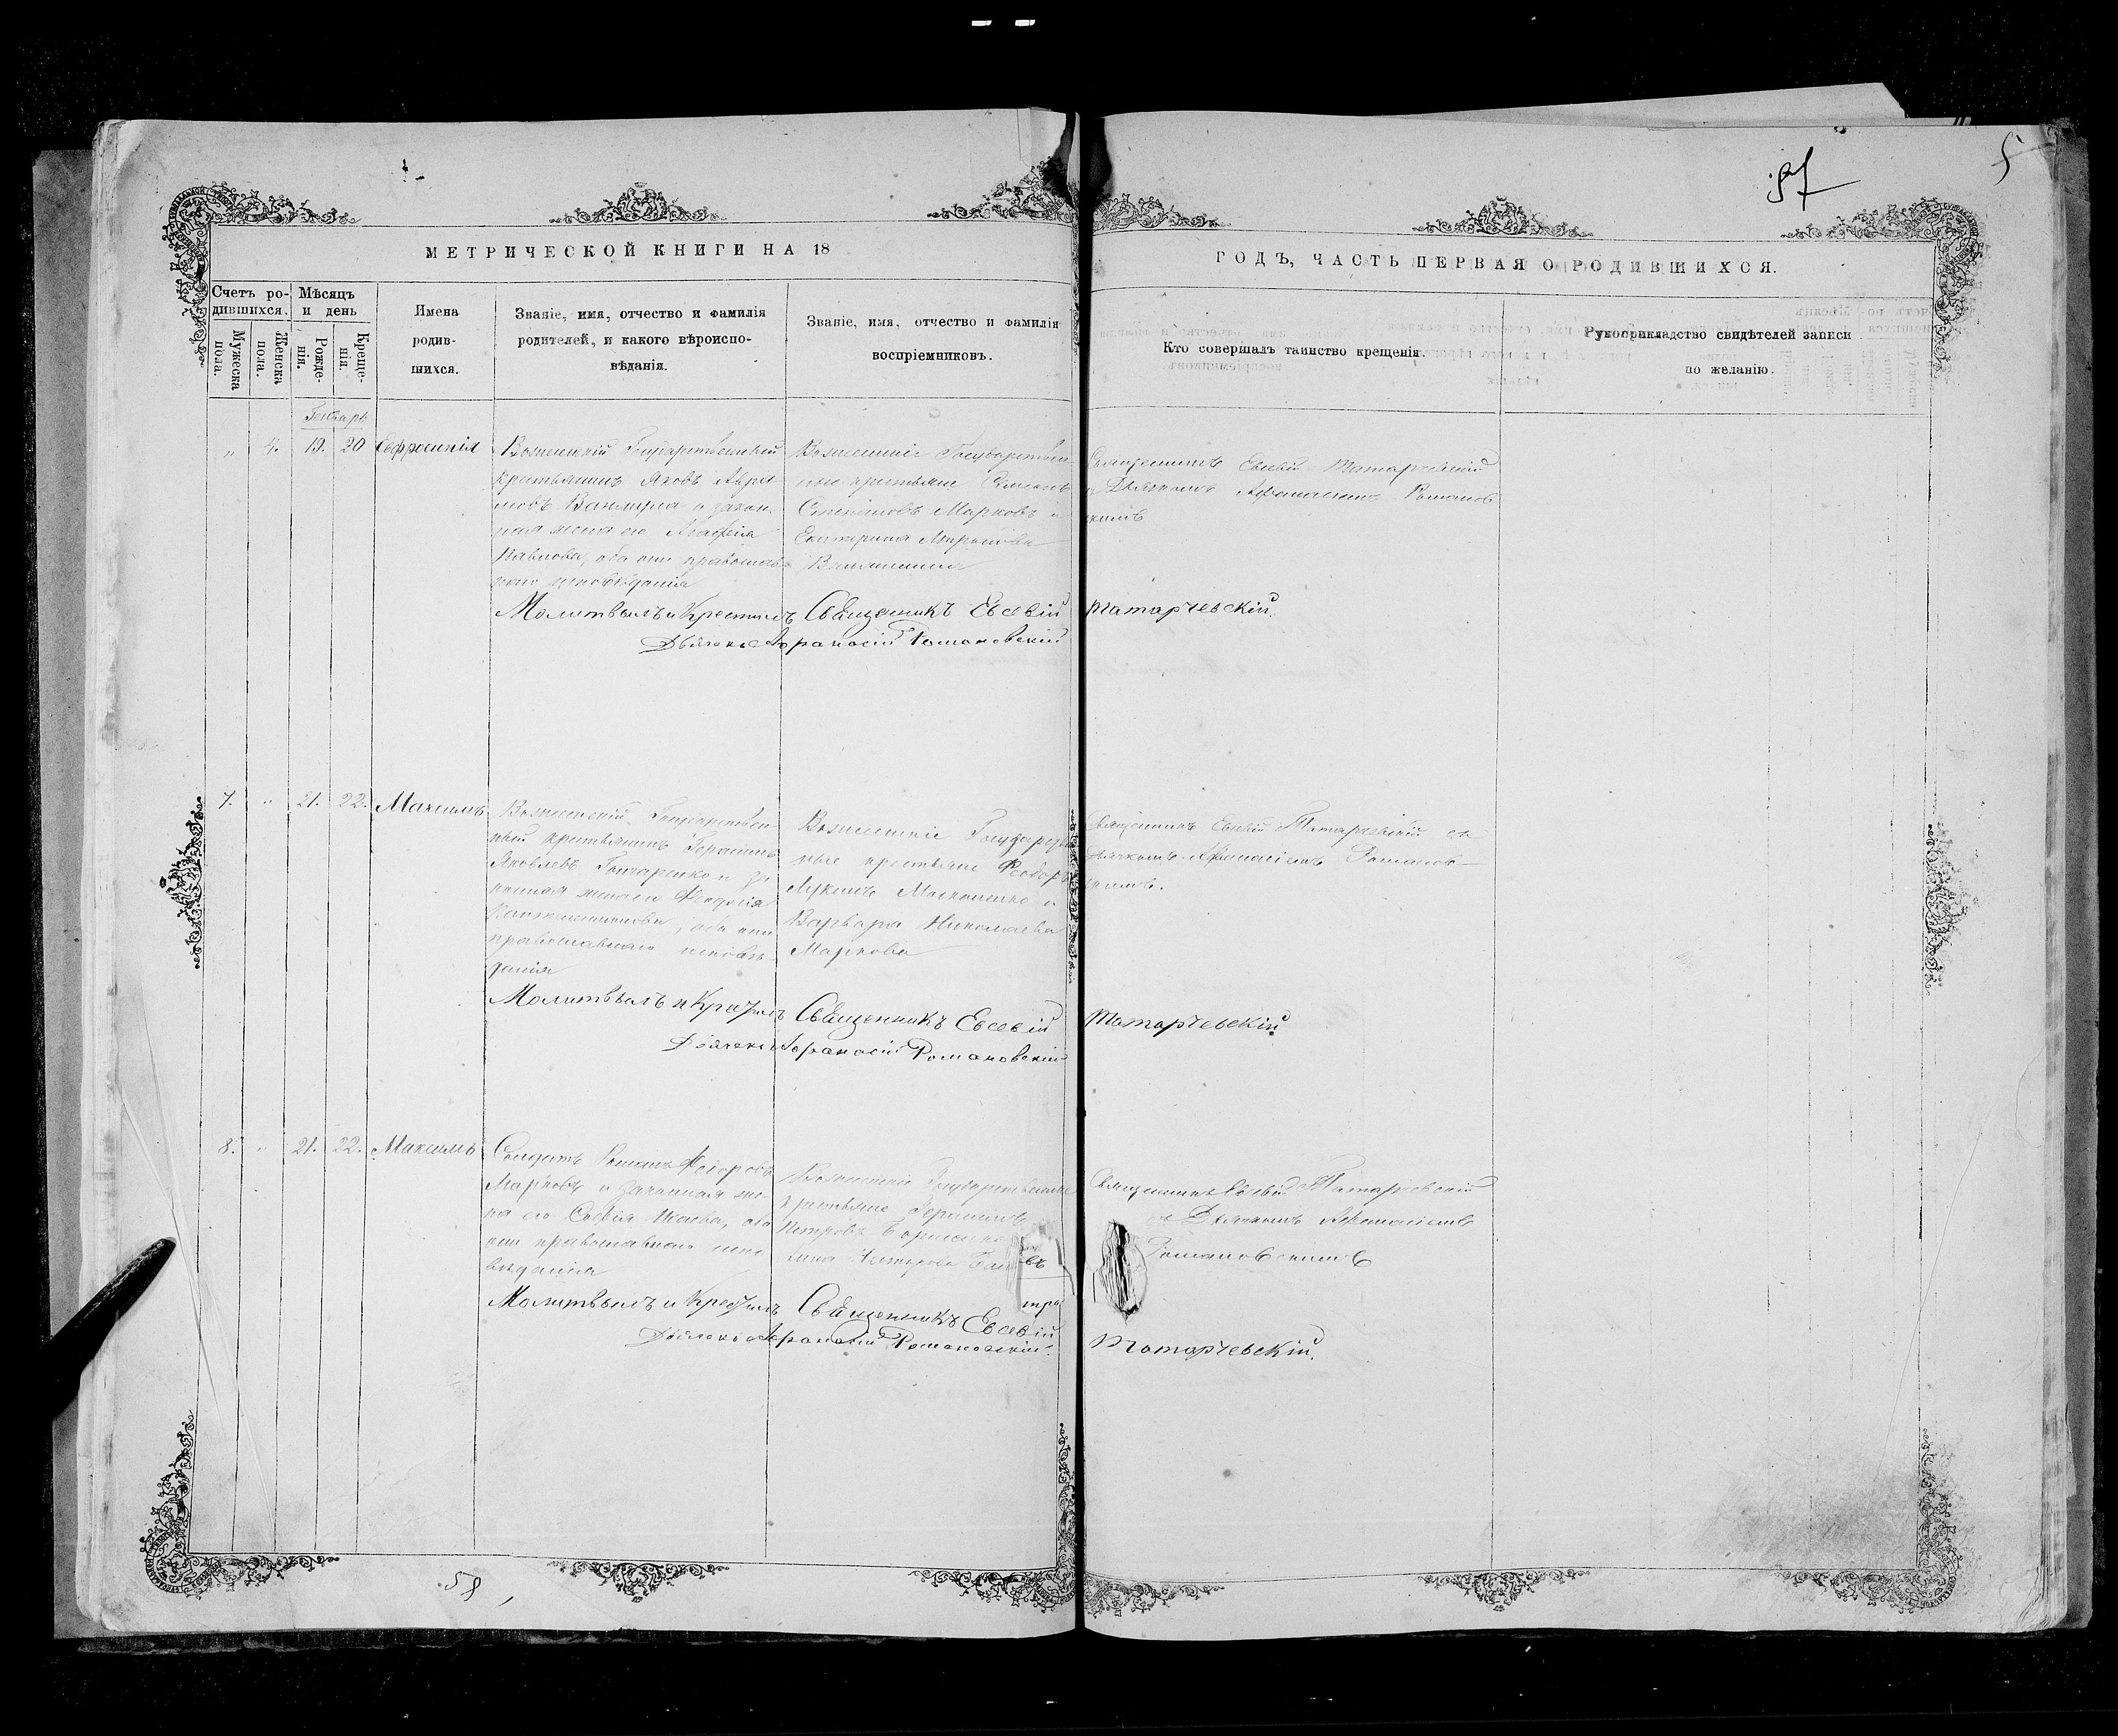 87
5
МЕТРИЧЕСКОЙ КНИГИ НА 18
ГОДЪ, ЧАСТЬ ПЕРВАЯ О РОДИВШИХСЯ.
Счетъ ро-
дившихся.
Мужеска пола.
Женска пола.
Мѣсяцъ
и день
Рожде-
нія.
Креще-
нія.
Имена
родив-
шихся.
Званіе, имя, отчество и фамилія
родителей, и какого вѣроиспо-
вѣданія.
Званіе, имя, отчество и фамилія
воспріемниковъ.
Кто совершалъ таинство крещенія.
Рукоприкладство свидѣтелей записи
по желанію.
Генварь
" 4. 19. 20 Евфросинія
Государственный
крестьянинъ Яковъ Авра-
мовъ и закон-
ная жена его Агафія
Павлова, оба они православ-
наго исповѣданія
Государствен-
ные крестьяне Симеонъ
Степановъ Марковъ и
Екатерина Миронова
Священникъ Евсевій Татарчевскій
съ Дьячкомъ Афанасіемъ Романов-
скимъ
Молитвовалъ и Крестилъ Священникъ Евсевій Татарчевскій.
Дьячекъ Афанасій Романовскій
7. " 21. 22. Максимъ
Государствен-
ный крестьянинъ Герасимъ
Яковлевъ Гончаренко и за-
конная жена его Феодосія
Константинова, оба они
православнаго исповѣ-
данія
крестьяне Феодоръ
Лукинъ и
Варвара Николаева
Маркова
Священникъ Евсевій Татарчевскій съ
Дьячкомъ Афанасіемъ Романов-
скимъ.
Молитвовалъ и Крестилъ Священникъ Евсевій Татарчевскій.
Дьячекъ Афанасій Романовскій
8. " 21. 22. Максимъ
Солдатъ Романъ Феодоровъ
Марковъ и законная же-
на его Софія Исаева, оба
они православнаго испо-
вѣданія
Государственные
крестьяне Герасимъ
Петровъ
Священникъ Евсевій Татарчевскій
съ Дьячкомъ Афанасіемъ
Романовскимъ
Молитвовалъ и Крестилъ Священникъ Евсевій Татарчевскій.
Дьячекъ Афанасій Романовскій.
58